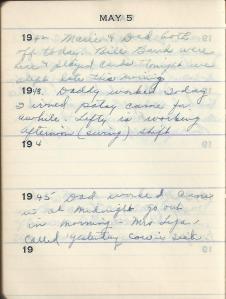 MAY 5
19 Marie & Dad both
off today. Bill Band were
here & played cards tonight we
slept late this morning
1943. Daddy worked today
I ironed Patsy came for
awhile. Lefty is working
afternoon (swing) shift
19 4
1945 Dad worked
at midnight go out
in morning - Mrs
called yesterday cow is sick.
19